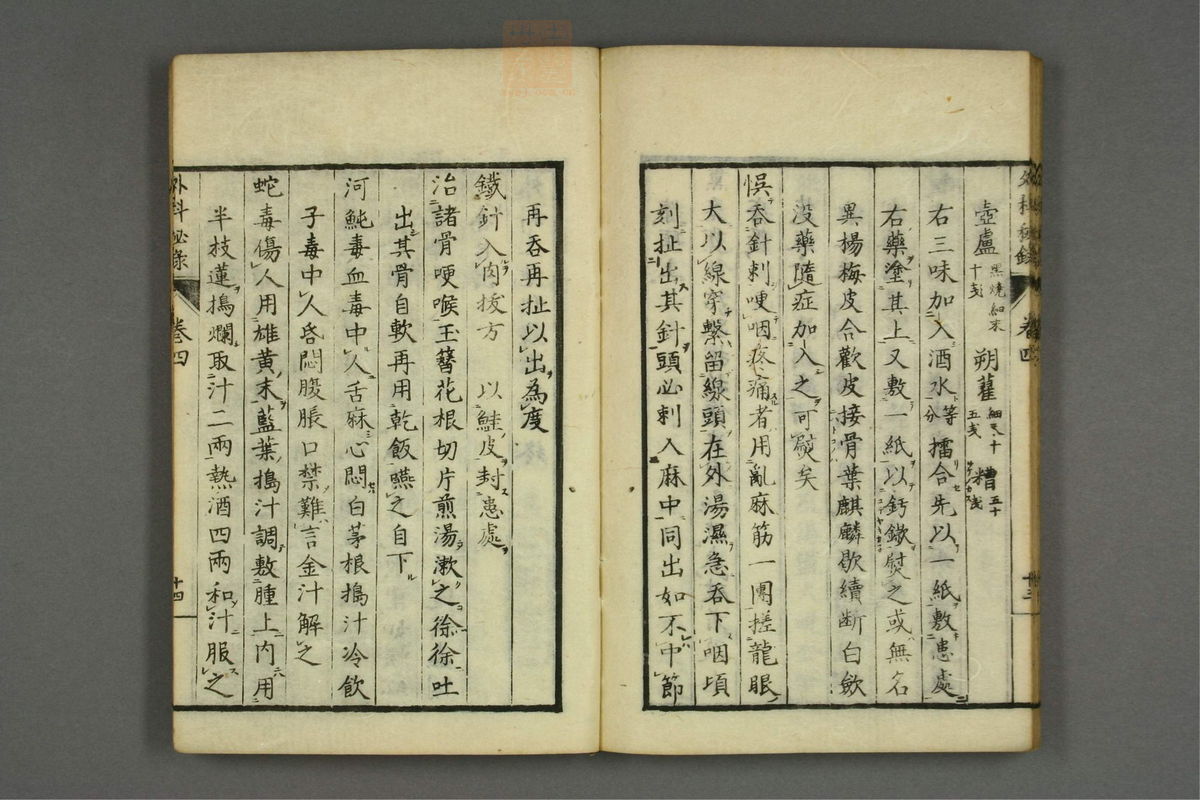 壺盧 黒燒細末十戔 朔藋 細末十五戔 糟 五十戔
右三味加入酒水等分擂合先以一紙敷患處
右藥塗其上又敷一紙以鈣鍬熨之或無名
異楊梅皮合歡皮接骨葉麒麟歇續断白歛
没藥隨症加入之可熨矣
悞吞針刺哽咽疼痛者用亂麻筋一團搓龍眼
大以線穿繫留線頭在外湯濕急吞下咽頃
刻扯出其針頭必刺入麻中同出如不中節
外科秘錄 卷四 十三
再吞再扯以出為度
鐵針入肉拔方 以鮭皮封患處
治諸骨哽喉玉簪花根切片煎湯漱之徐徐吐
出其骨自軟再用乾飯嚥之自下
河魨毒血毒中人舌麻心悶白茅根搗汁冷飲
子毒中人昏悶腹脹口禁難言金汁解之
蛇毒傷人用雄黄末藍葉搗汁調敷腫上内用
半技蓮搗爛取汁二兩熱酒四兩和汁服之
外科秘錄 卷四 十四